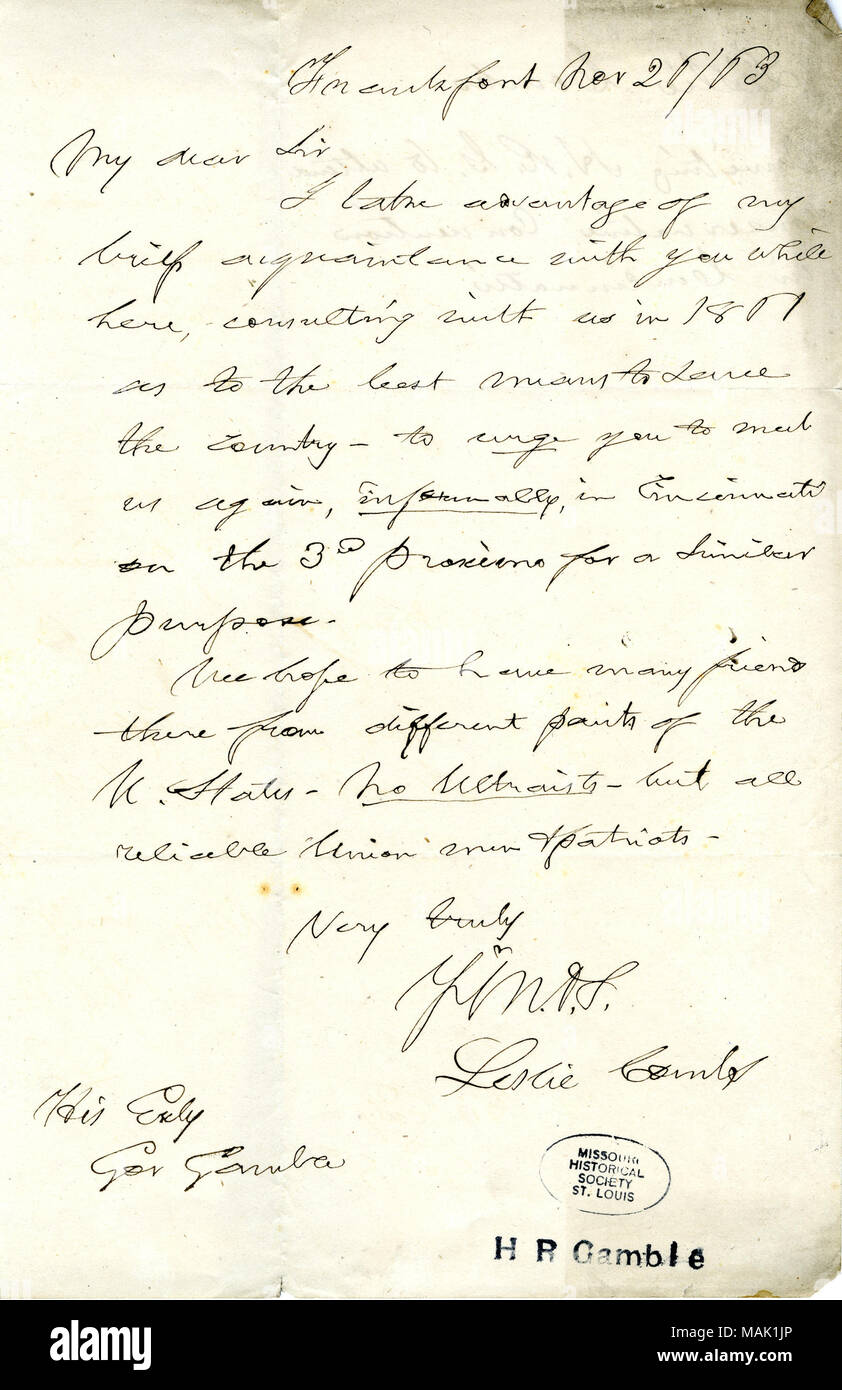 Frankfort Nov 26/63
My dear Sir
I take advantage of my
brief acquaintance with you while
here, consulting with us in 1861
as to the best means to save
the country - to urge you to meet
us again, informally, in Cincinnati
on the 3d proximo for a similar
purpose.
We hope to have many friends
there from different parts of the
U. States - No Ultraists - but all
reliable Union men & patriots -
Very truly
Leslie Combs
His Exly
Gov Gamble
MISSOURI
HISTORICAL
SOCIETY
ST. LOUIS
H R Gamble
alamy
Image ID: MAK1JP
www.alamy.com